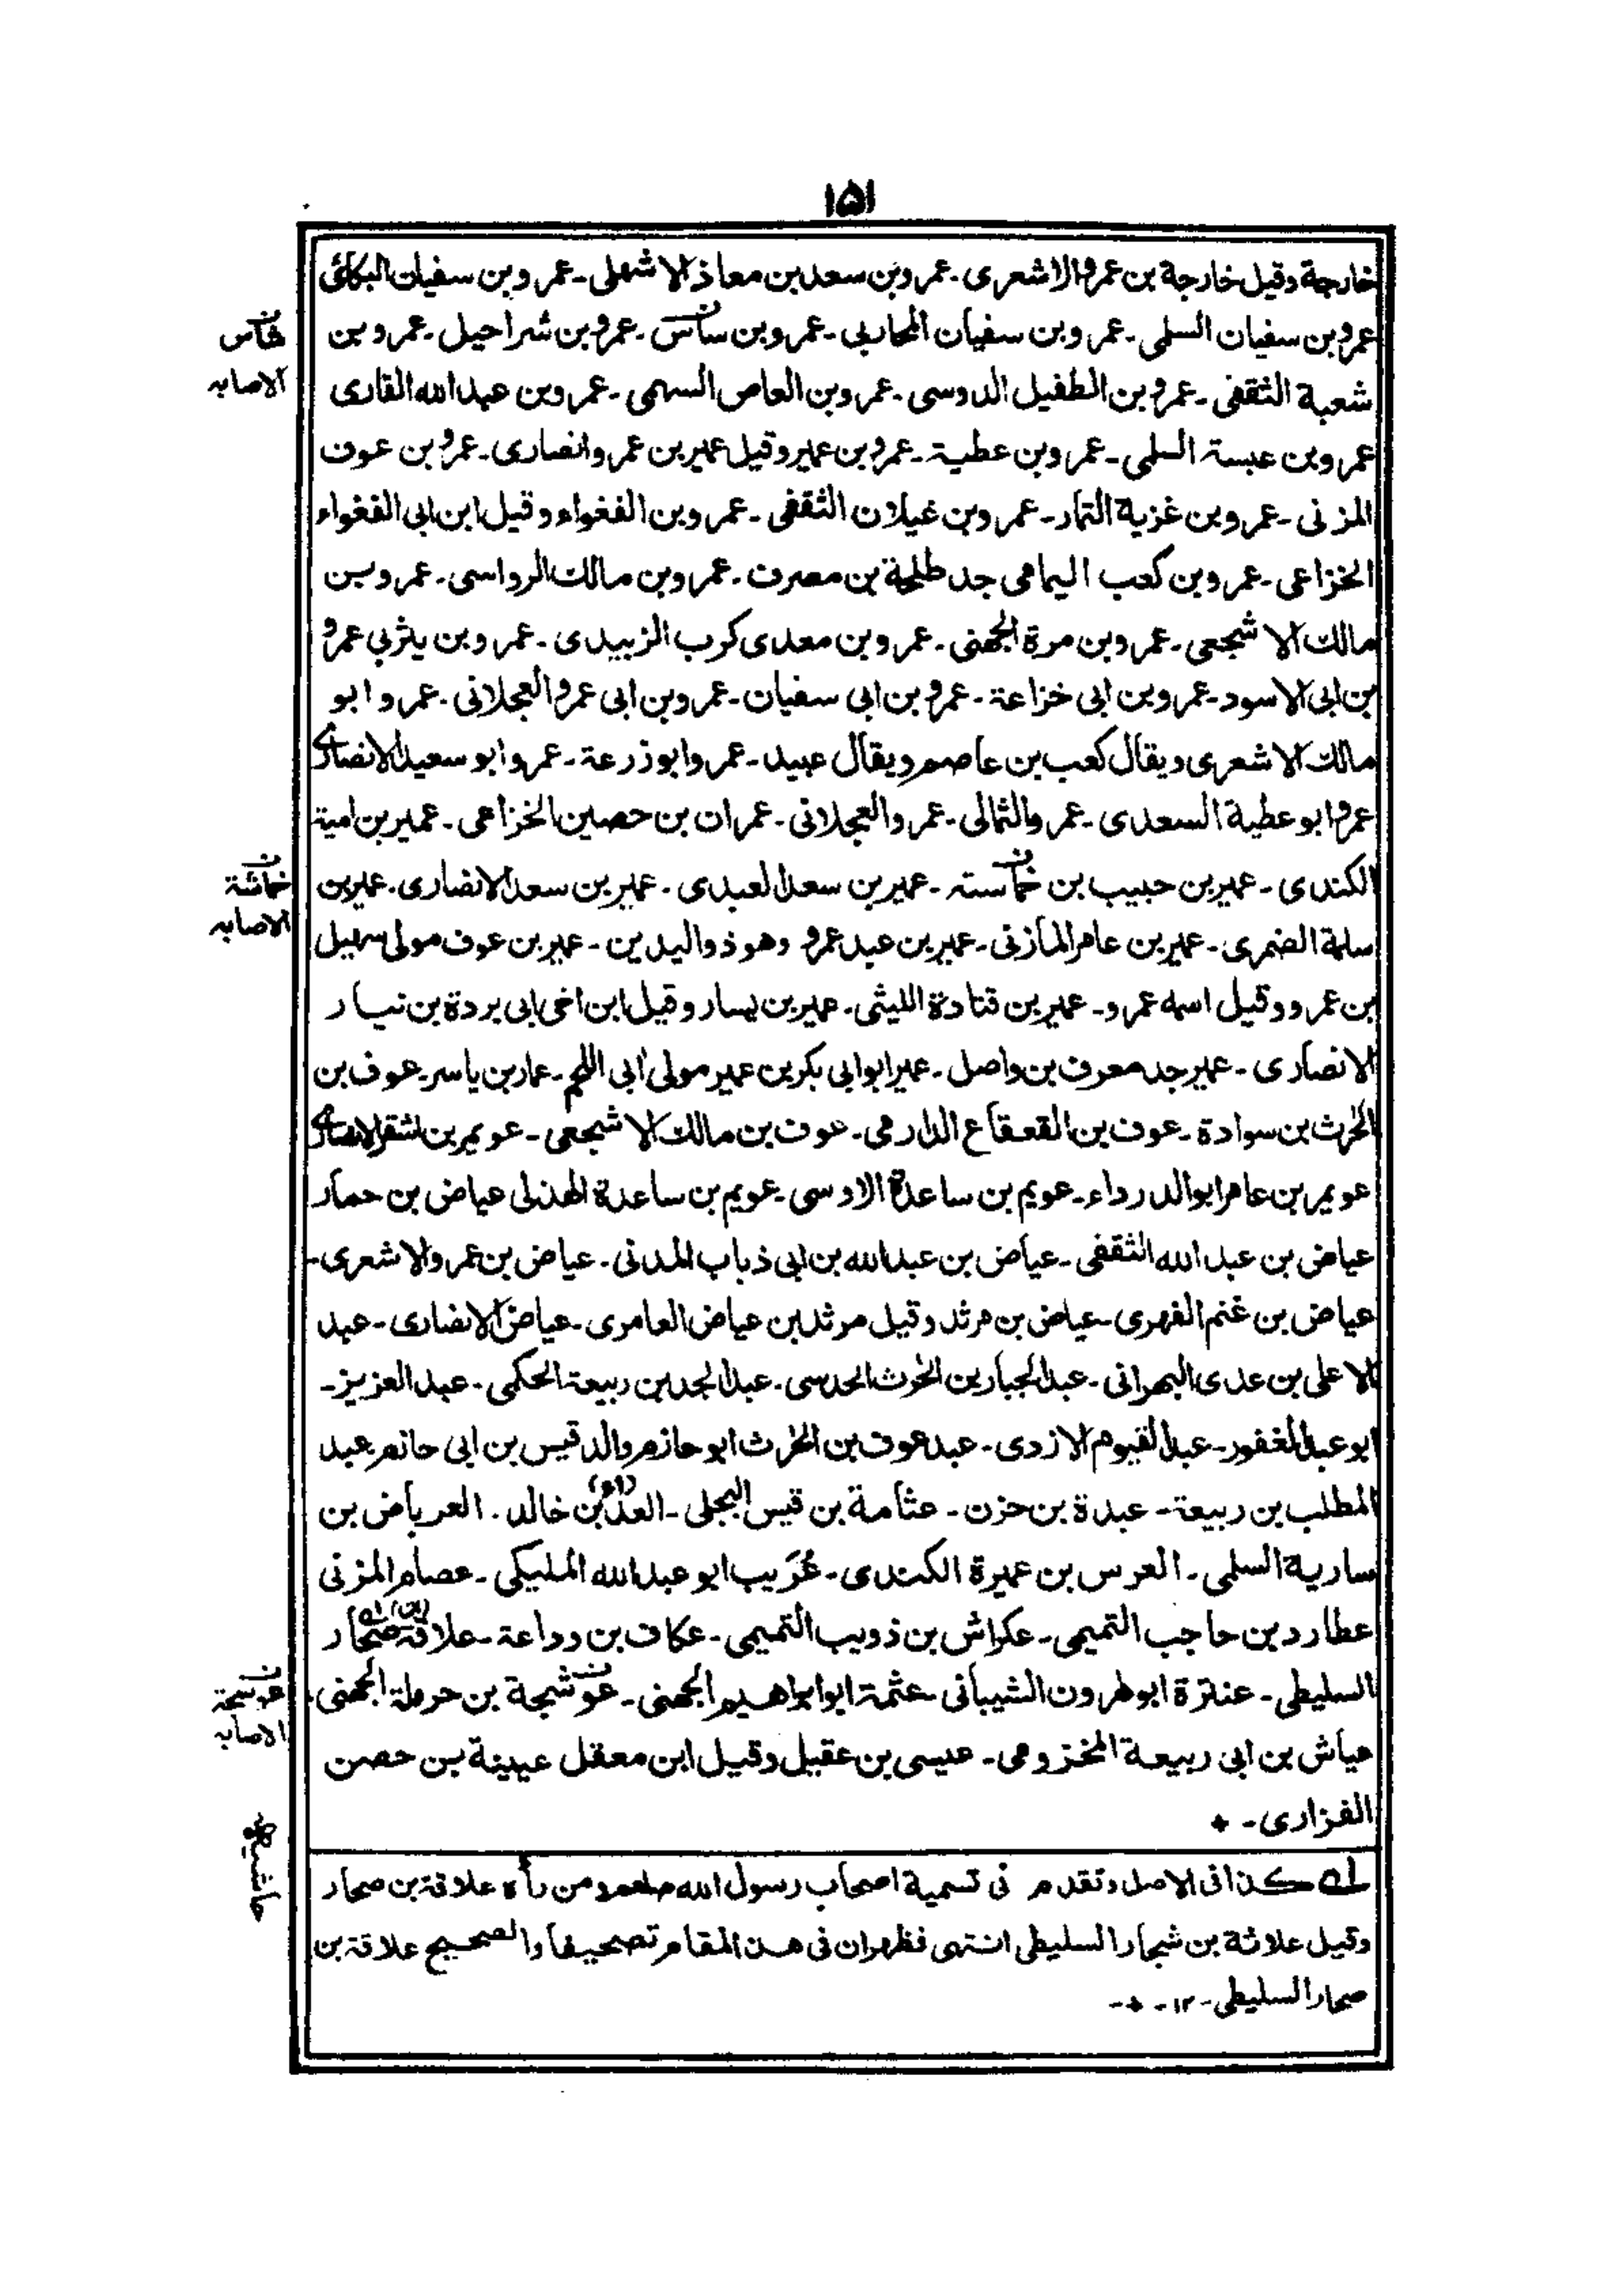 ١٥١
خارجة وقيل خارجة بن عمرو الاشعرى۔ عمرو بن سعد بن معاذ الاشهلى۔ عمرو بن سفيان البكائى
عمرو بن سفيان السلمى۔ عمرو بن سفيان المحاربى۔ عمرو بن ساس۔ عمرو بن شراحيل۔ عمرو بن
شاس
الاصابه
شعبة الثقفى۔ عمرو بن الطفيل الدوسى۔ عمرو بن العاص السهمى۔ عمرو بن عبد الله القارى
عمرو بن عبسة السلمى۔ عمرو بن عطية۔ عمرو بن عمير وقيل عمير بن عمرو انصارى۔ عمرو بن عوف
المزنى۔ عمرو بن غزية التمار۔ عمرو بن غيلان الثقفى۔ عمرو بن الفغواء وقيل ابن ابى الفغواء
الخزاعى۔ عمرو بن كعب اليمامى جد طلحة بن مصرف۔ عمرو بن مالك الرواسى۔ عمرو بن
مالك الاشجعى۔ عمرو بن مرة الجهنى۔ عمرو بن معدى كرب الزبيدى۔ عمرو بن يثربى عمرو
بن ابى الاسود۔ عمرو بن ابى خزاعة۔ عمرو بن ابى سفيان۔ عمرو بن ابى عمرو العجلانى۔ عمرو ابو
مالك الاشعرى ويقال كعب بن عاصم ويقال عبيد۔ عمرو ابو زرعة۔ عمرو ابو سعيد الانصارى
عمرو ابو عطية السعدى۔ عمرو الثمالى۔ عمرو العجلانى۔ عمران بن حصين الخزاعى۔ عمير بن امية
الكندى۔ عمير بن حبيب بن خماسته۔ عمير بن سعد العبدى۔ عمير بن سعد الانصارى۔ عمير بن
خماشة
الاصابه
سلمة الضمرى۔ عمير بن عامر المازنى۔ عمير بن عبد عمرو وهو ذو اليدين۔ عمير بن عوف مولى سهيل
بن عمرو وقيل اسمه عمرو۔ عمير بن قتادة الليثى۔ عمير بن يسار وقيل ابن اخى ابى بردة بن نيار
الانصارى۔ عمير جد معرف بن واصل۔ عمير ابو ابى بكر بن عمير مولى ابى اللحم۔ عمار بن ياسر۔ عوف بن
الحرث بن سوادة۔ عوف بن القعقاع الدارمى۔ عوف بن مالك الاشجعى۔ عويمر بن اشقر الانصارى
عويمر بن عامر ابو الدرداء۔ عويم بن ساعدة الاوسى۔ عويم بن ساعدة الهذلى عياض بن حمار
عياض بن عبد الله الثقفى۔ عياض بن عبد الله بن ابى ذباب المدنى۔ عياض بن عمرو الاشعرى۔
عياض بن غنم الفهرى۔ عياض بن مرثد وقيل مرثد بن عياض العامرى۔ عياض الانصارى۔ عبد
الاعلى بن عدى البهرانى۔ عبد الجبار بن الحرث الحدسى۔ عبد الجد بن ربيعة الحكمى۔ عبد العزيز۔
ابو عبد الغفور۔ عبد القيوم الازدى۔ عبد عوف بن الحرث ابو حازم والد قيس بن ابى حازم عبد
المطلب بن ربيعة۔ عبدة بن حزن۔ عثامة بن قيس البجلى۔ العدا بن خالد۔ العرباض بن
سارية السلمى۔ العرس بن عميرة الكندى۔ عُرَيب ابو عبد الله المليكى۔ عصام المزنى
عطارد بن حاجب التميمى۔ عكراش بن ذويب التميمى۔ عكاف بن وداعة۔ علاقة (بن) صحار
السليطى۔ عنترة ابو هرون الشيبانى۔ عثمة ابو ابراهيم الجهنى۔ عوشجة بن حرملة الجهنى
عوسجة
الاصابه
عياش بن ابى ربيعة المخزومى۔ عيسى بن عقيل وقيل ابن معقل عيينة بن حصن
الفزارى۔
حاشيه
له كذا فى الاصل وتقدم فى تسمية اصحاب رسول الله صلعم ومن رأه علاقة بن صحار
وقيل علاثة بن شجار السليطى انتهى فظهر ان فى هذا المقام تصحيفا والصحيح علاقة بن
صحار السليطى۔ ١٢۔